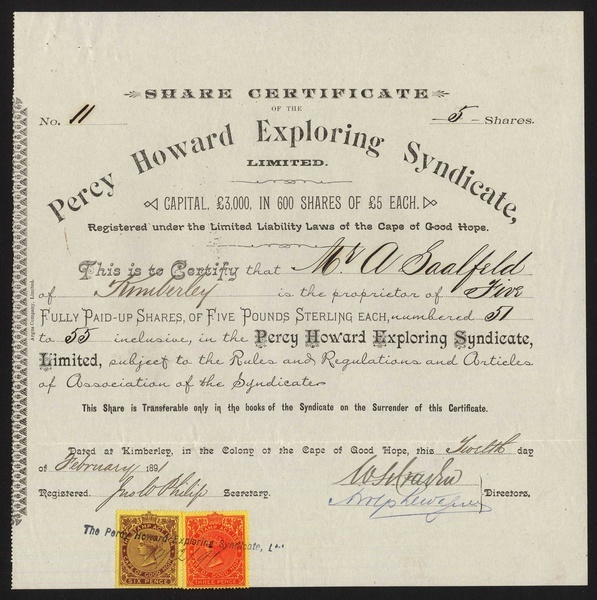 SHARE CERTIFICATE
OF THE
No. 11
5 Shares.
Percy Howard Exploring Syndicate,
LIMITED.
CAPITAL, £3,000, IN 600 SHARES OF £5 EACH.
Registered under the Limited Liability Laws of the Cape of Good Hope.
This is to Certify that Mr A Saalfeld
of Kimberley is the proprietor of Five
FULLY PAID-UP SHARES, OF FIVE POUNDS STERLING EACH, numbered 51
to 55 inclusive, in the Percy Howard Exploring Syndicate,
Limited, subject to the Rules and Regulations and Articles
of Association of the Syndicate
This Share is Transferable only in the books of the Syndicate on the Surrender of this Certificate.
Dated at Kimberley, in the Colony of the Cape of Good Hope, this Twelth day
of February 1891
Registered. Jno W Philip Secretary.
Directors,
The Percy Howard Exploring Syndicate, Ld.
STAMP ACT
CAPE OF GOOD HOPE
SIX PENCE
STAMP ACT
CAPE OF GOOD HOPE
THREE PENCE
Argus Company, Limited.